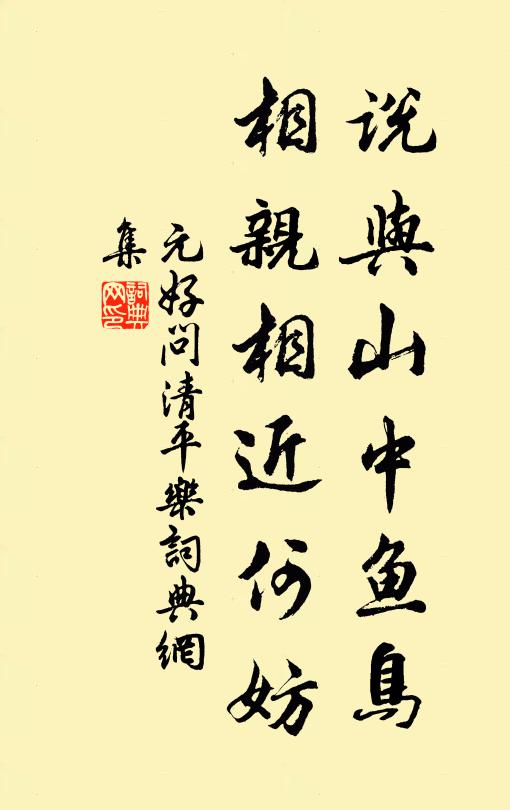 说與山中鱼鳥
相親相近何妨
元好问清平樂詞典網
集
詞典
网印